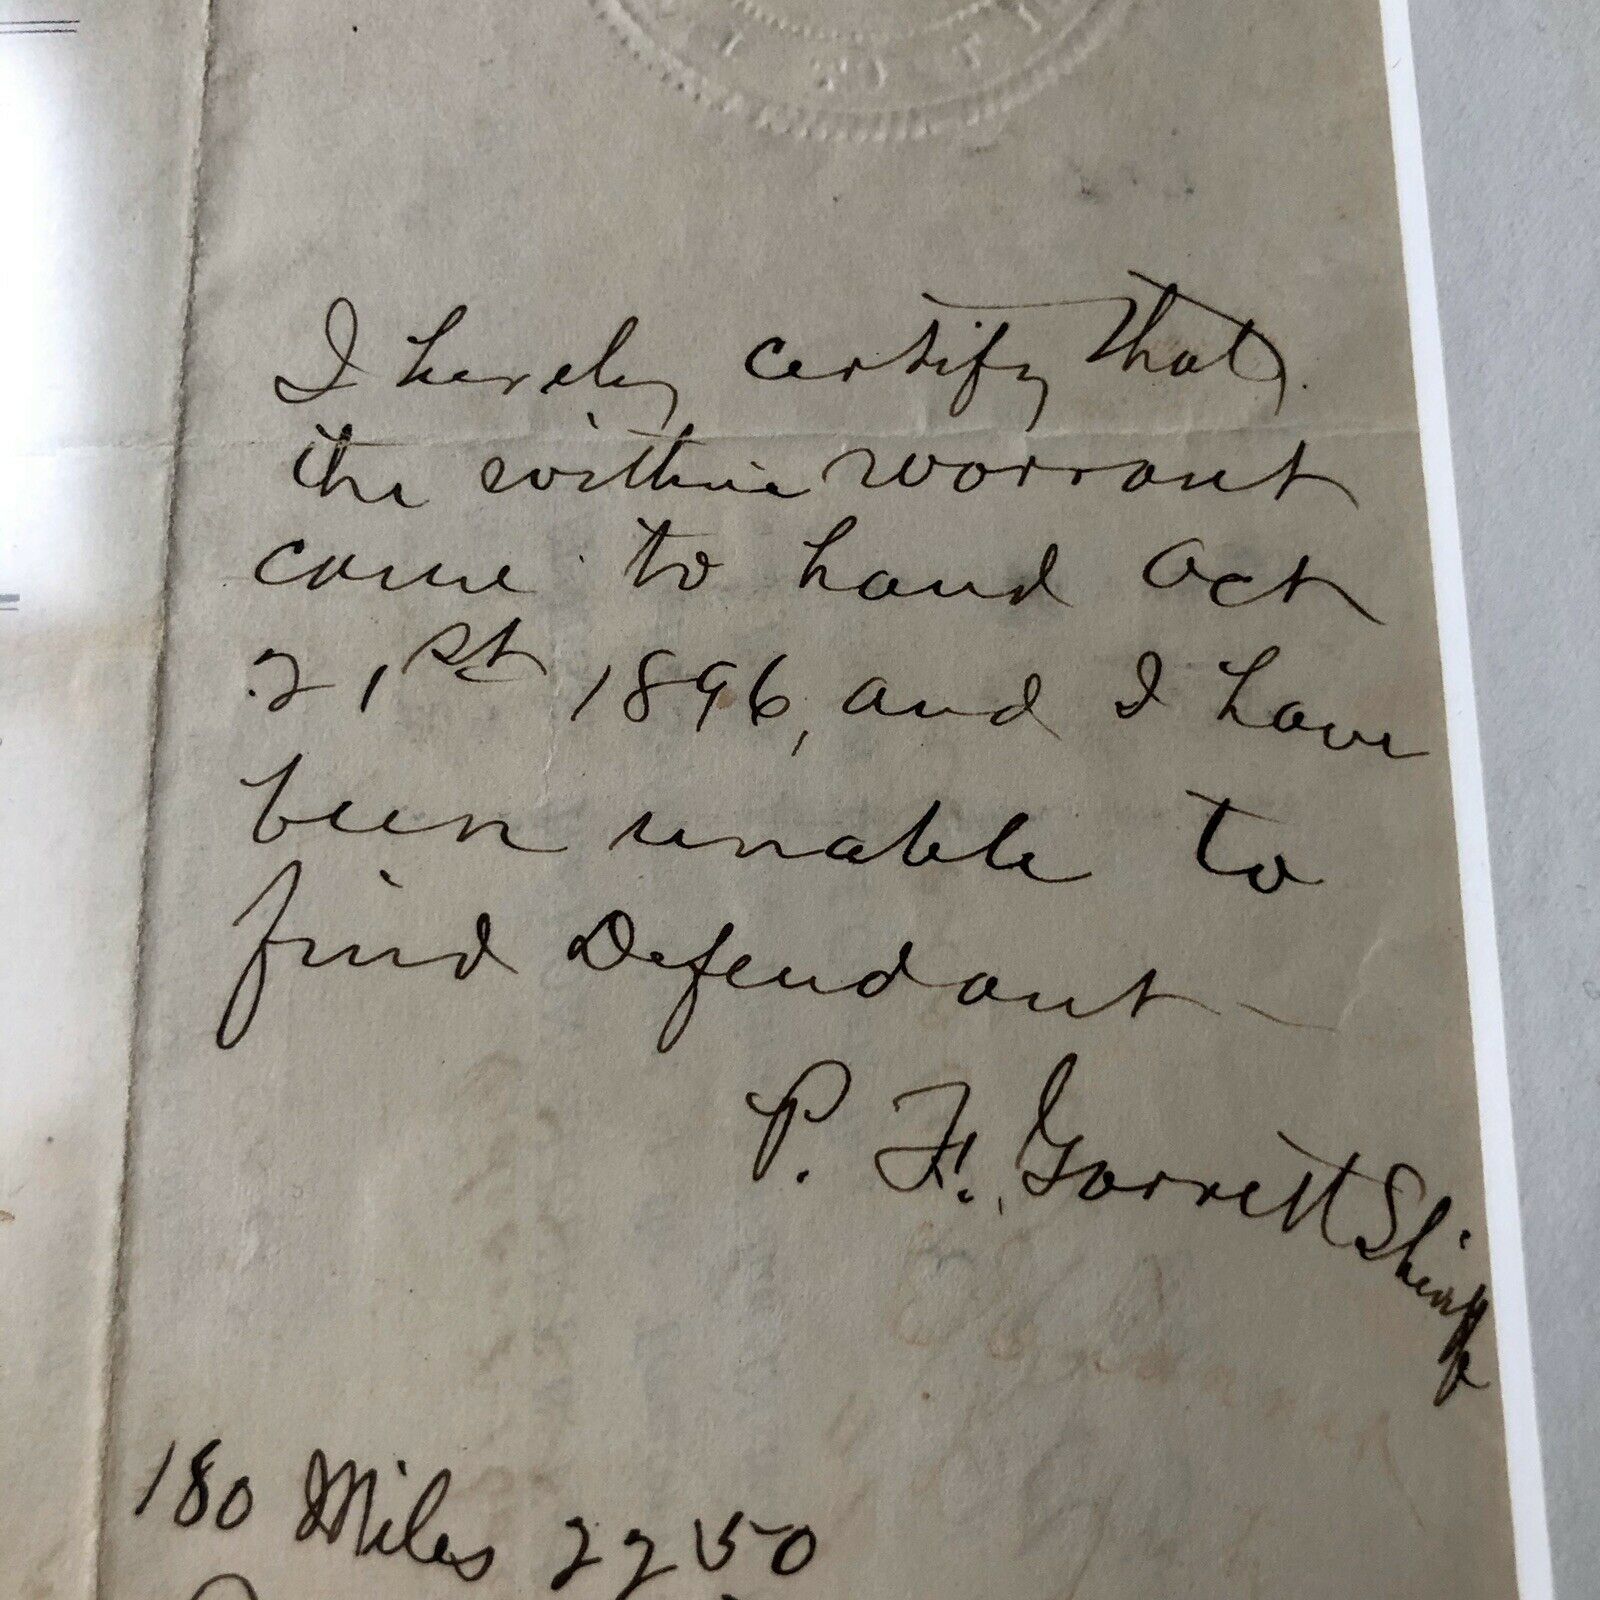 I hereby certify that
the within warrant
came to hand Oct
21st 1896, and I have
been unable to
find Defendant
P. F. Garrett Shiff
180 Miles 22 50